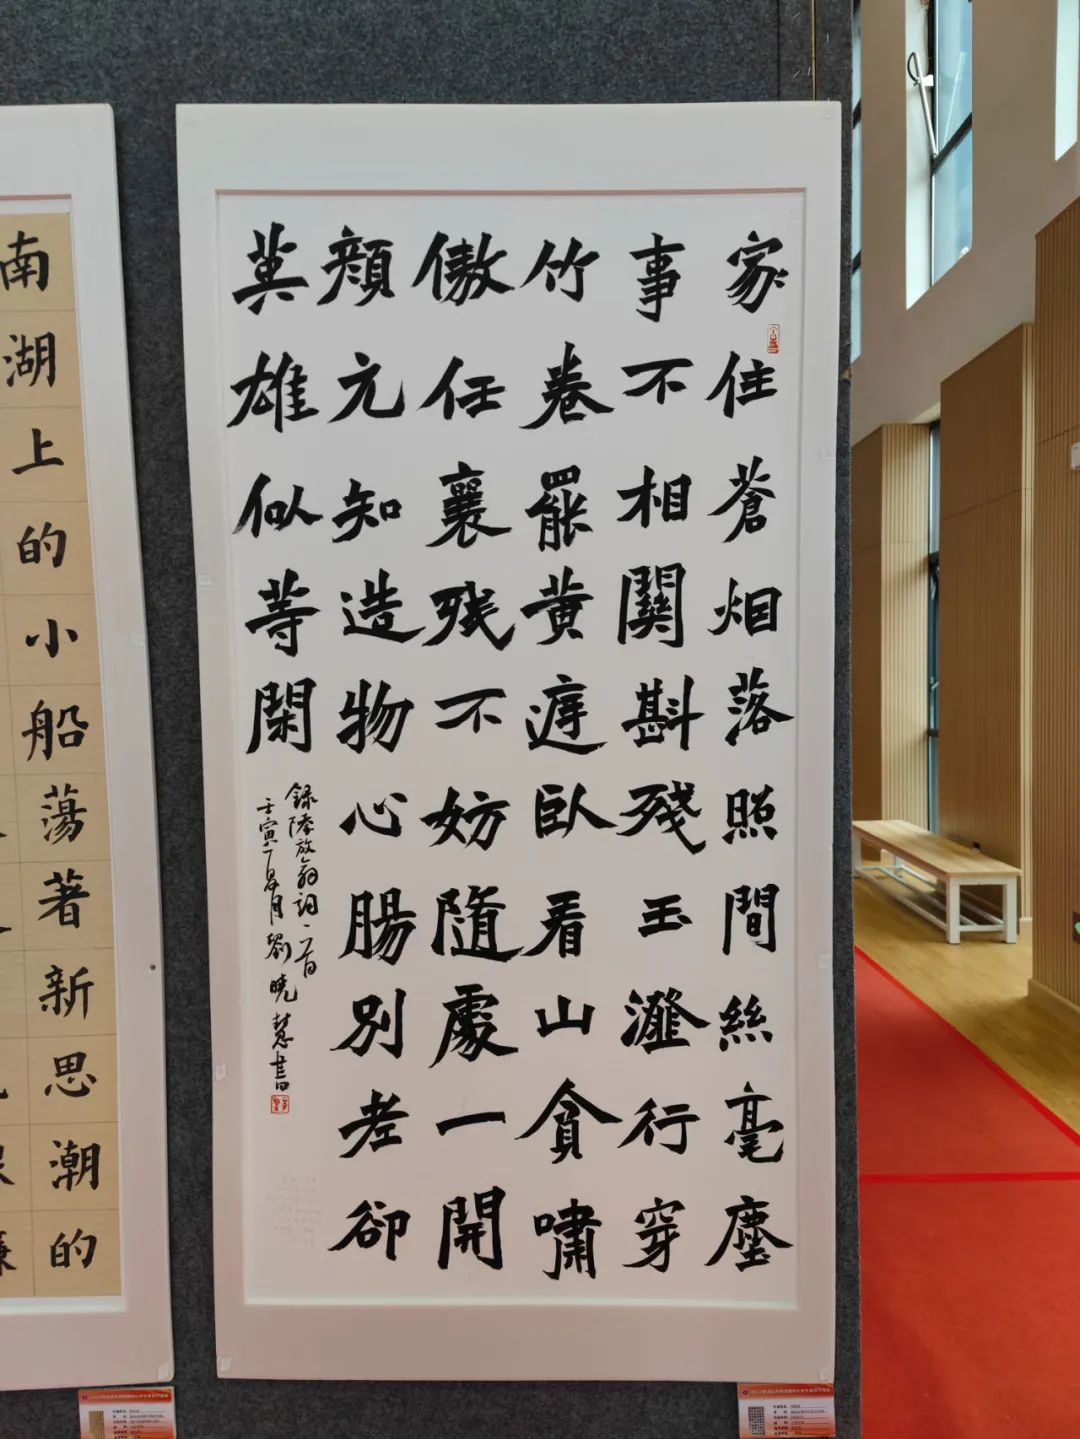 家住蒼烟落照間絲毫塵
事不相關斟殘玉瀣行穿
竹卷罷黄庭臥看山貪嘯
傲任襄残不妨隨處一開
顏元知造物心腸别老卻
英雄似等閑
錄陸放翁詞一首
壬寅 月劉曉慧書
南湖上的小船蕩著新思潮的